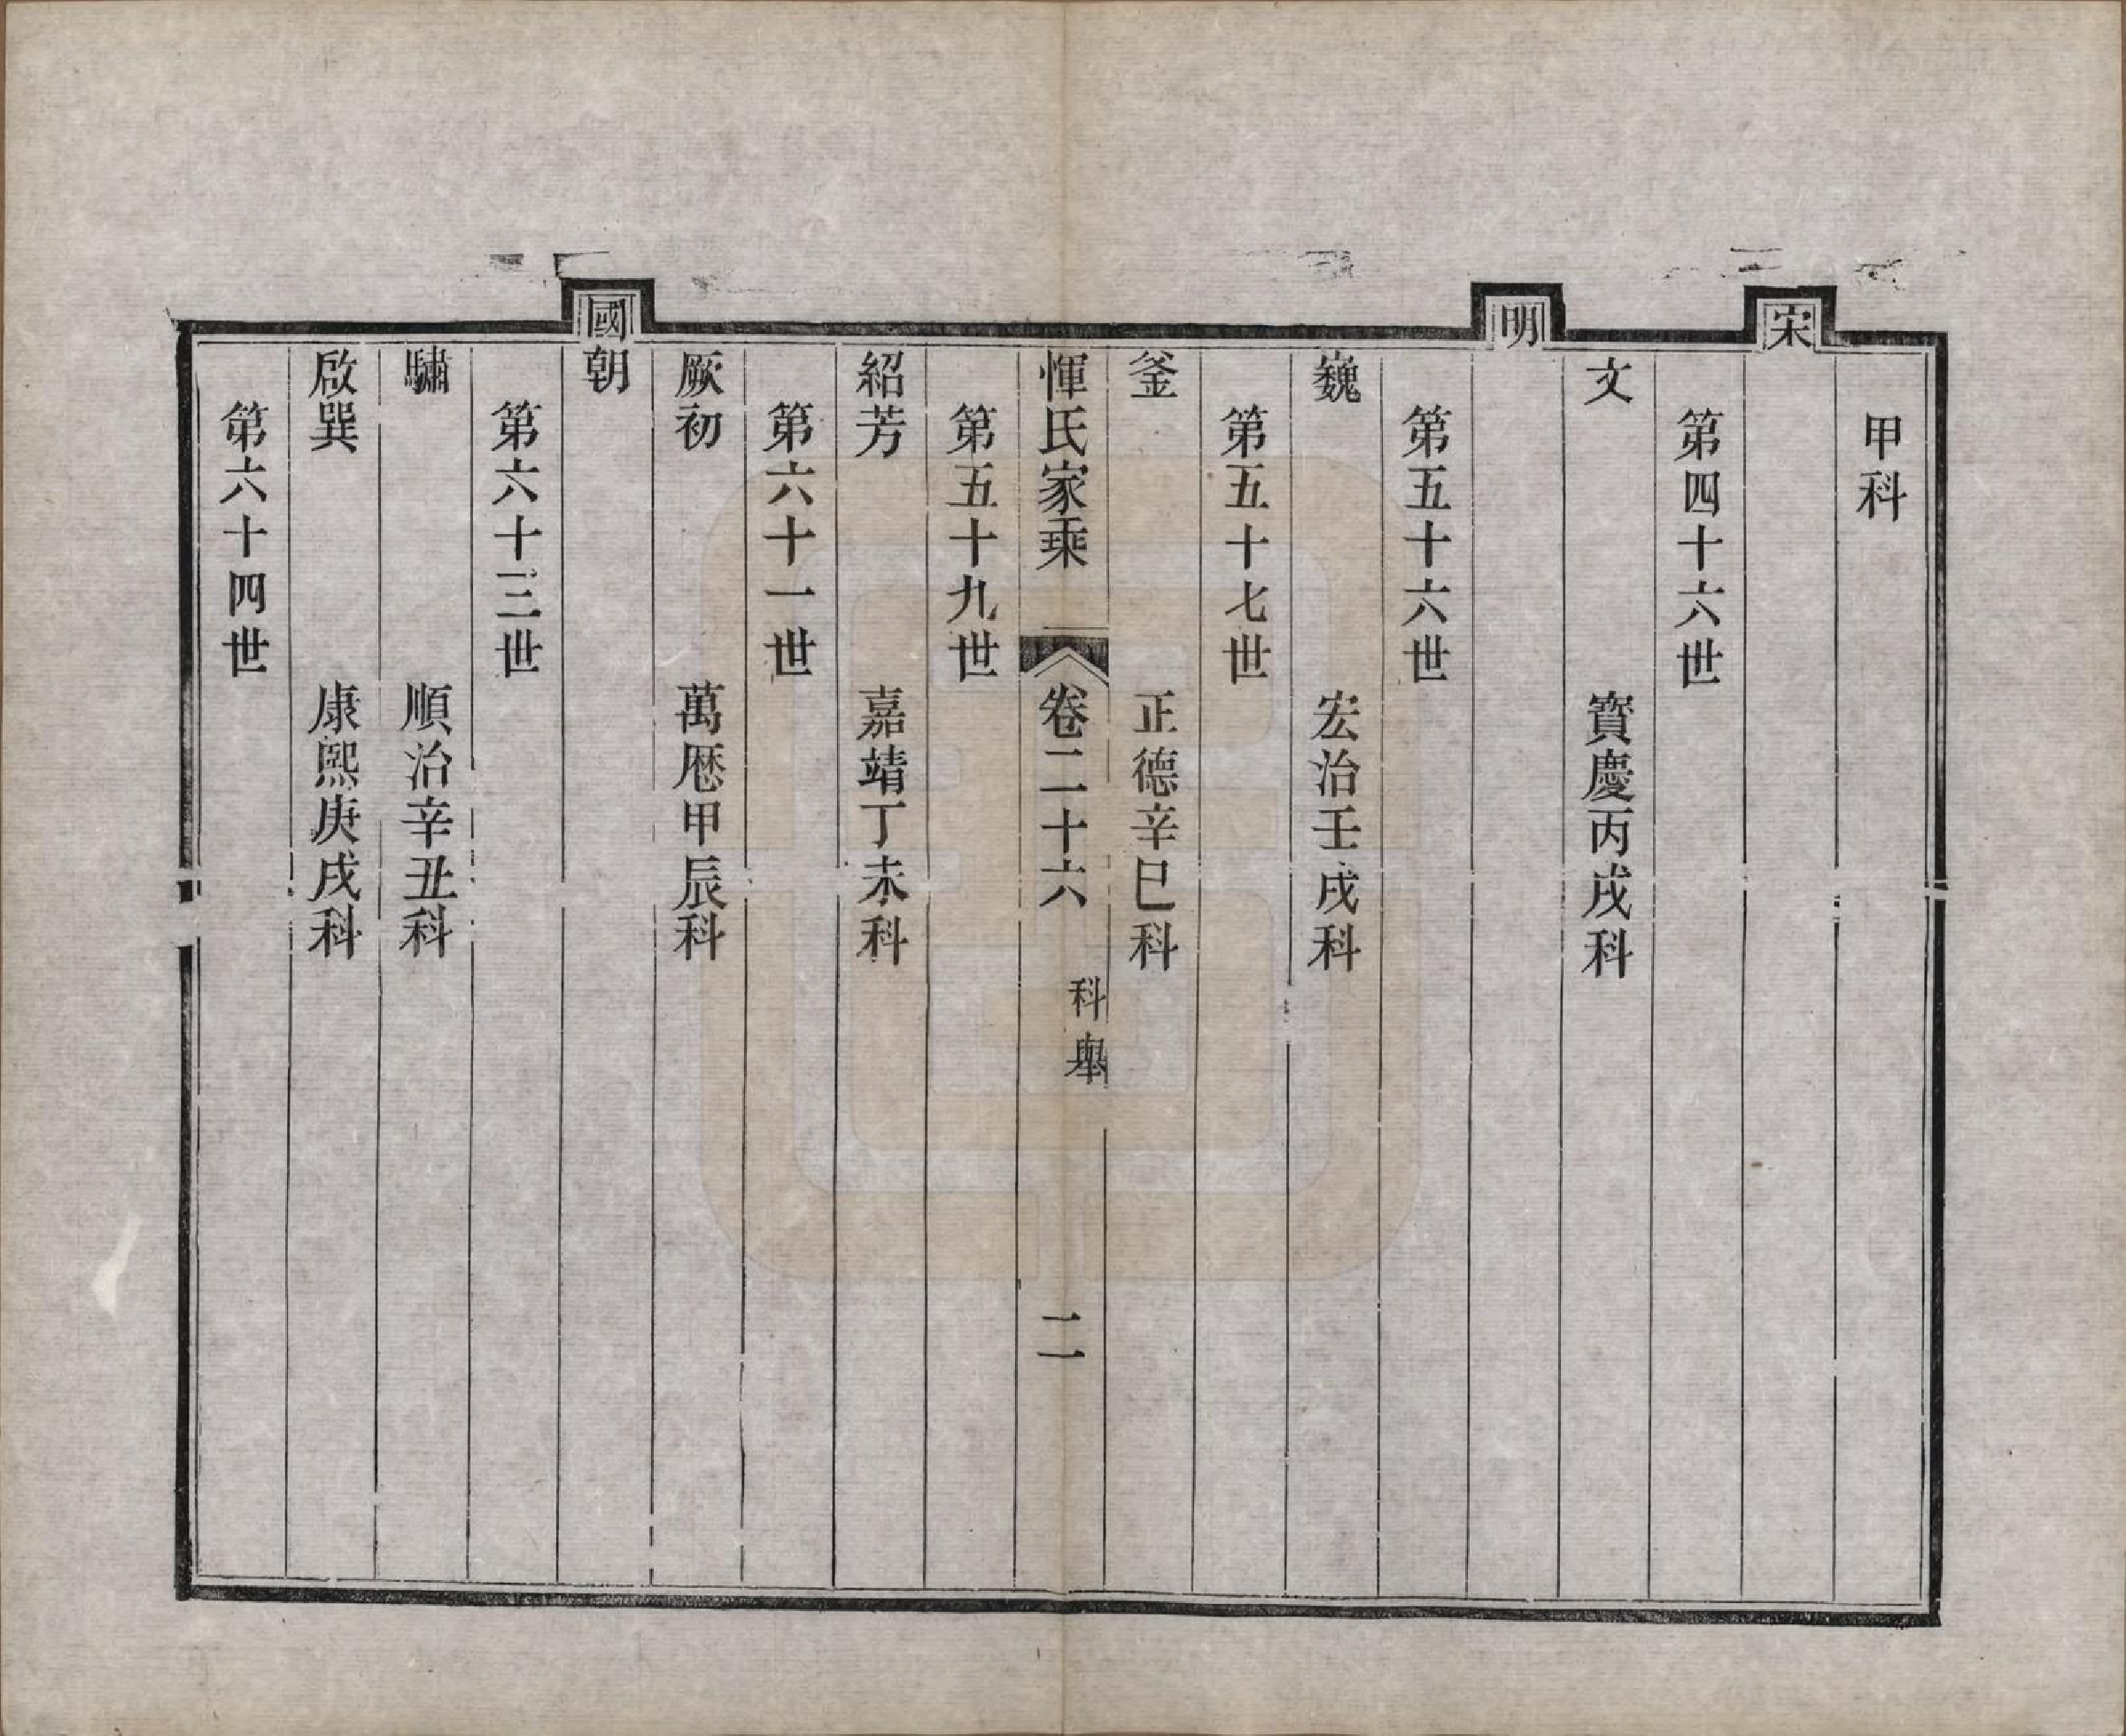 甲科
宋
第四十六世
文　寳慶丙戌科
明
第五十六世
巍　宏治壬戌科
第五十七世
釜　正德辛巳科
惲氏家乘　卷二十六　科舉　二
第五十九世
紹芳　嘉靖丁未科
第六十一世
厥初　萬厯甲辰科
國朝
第六十三世
驌　順治辛丑科
啟巽　康熙庚戌科
第六十四世